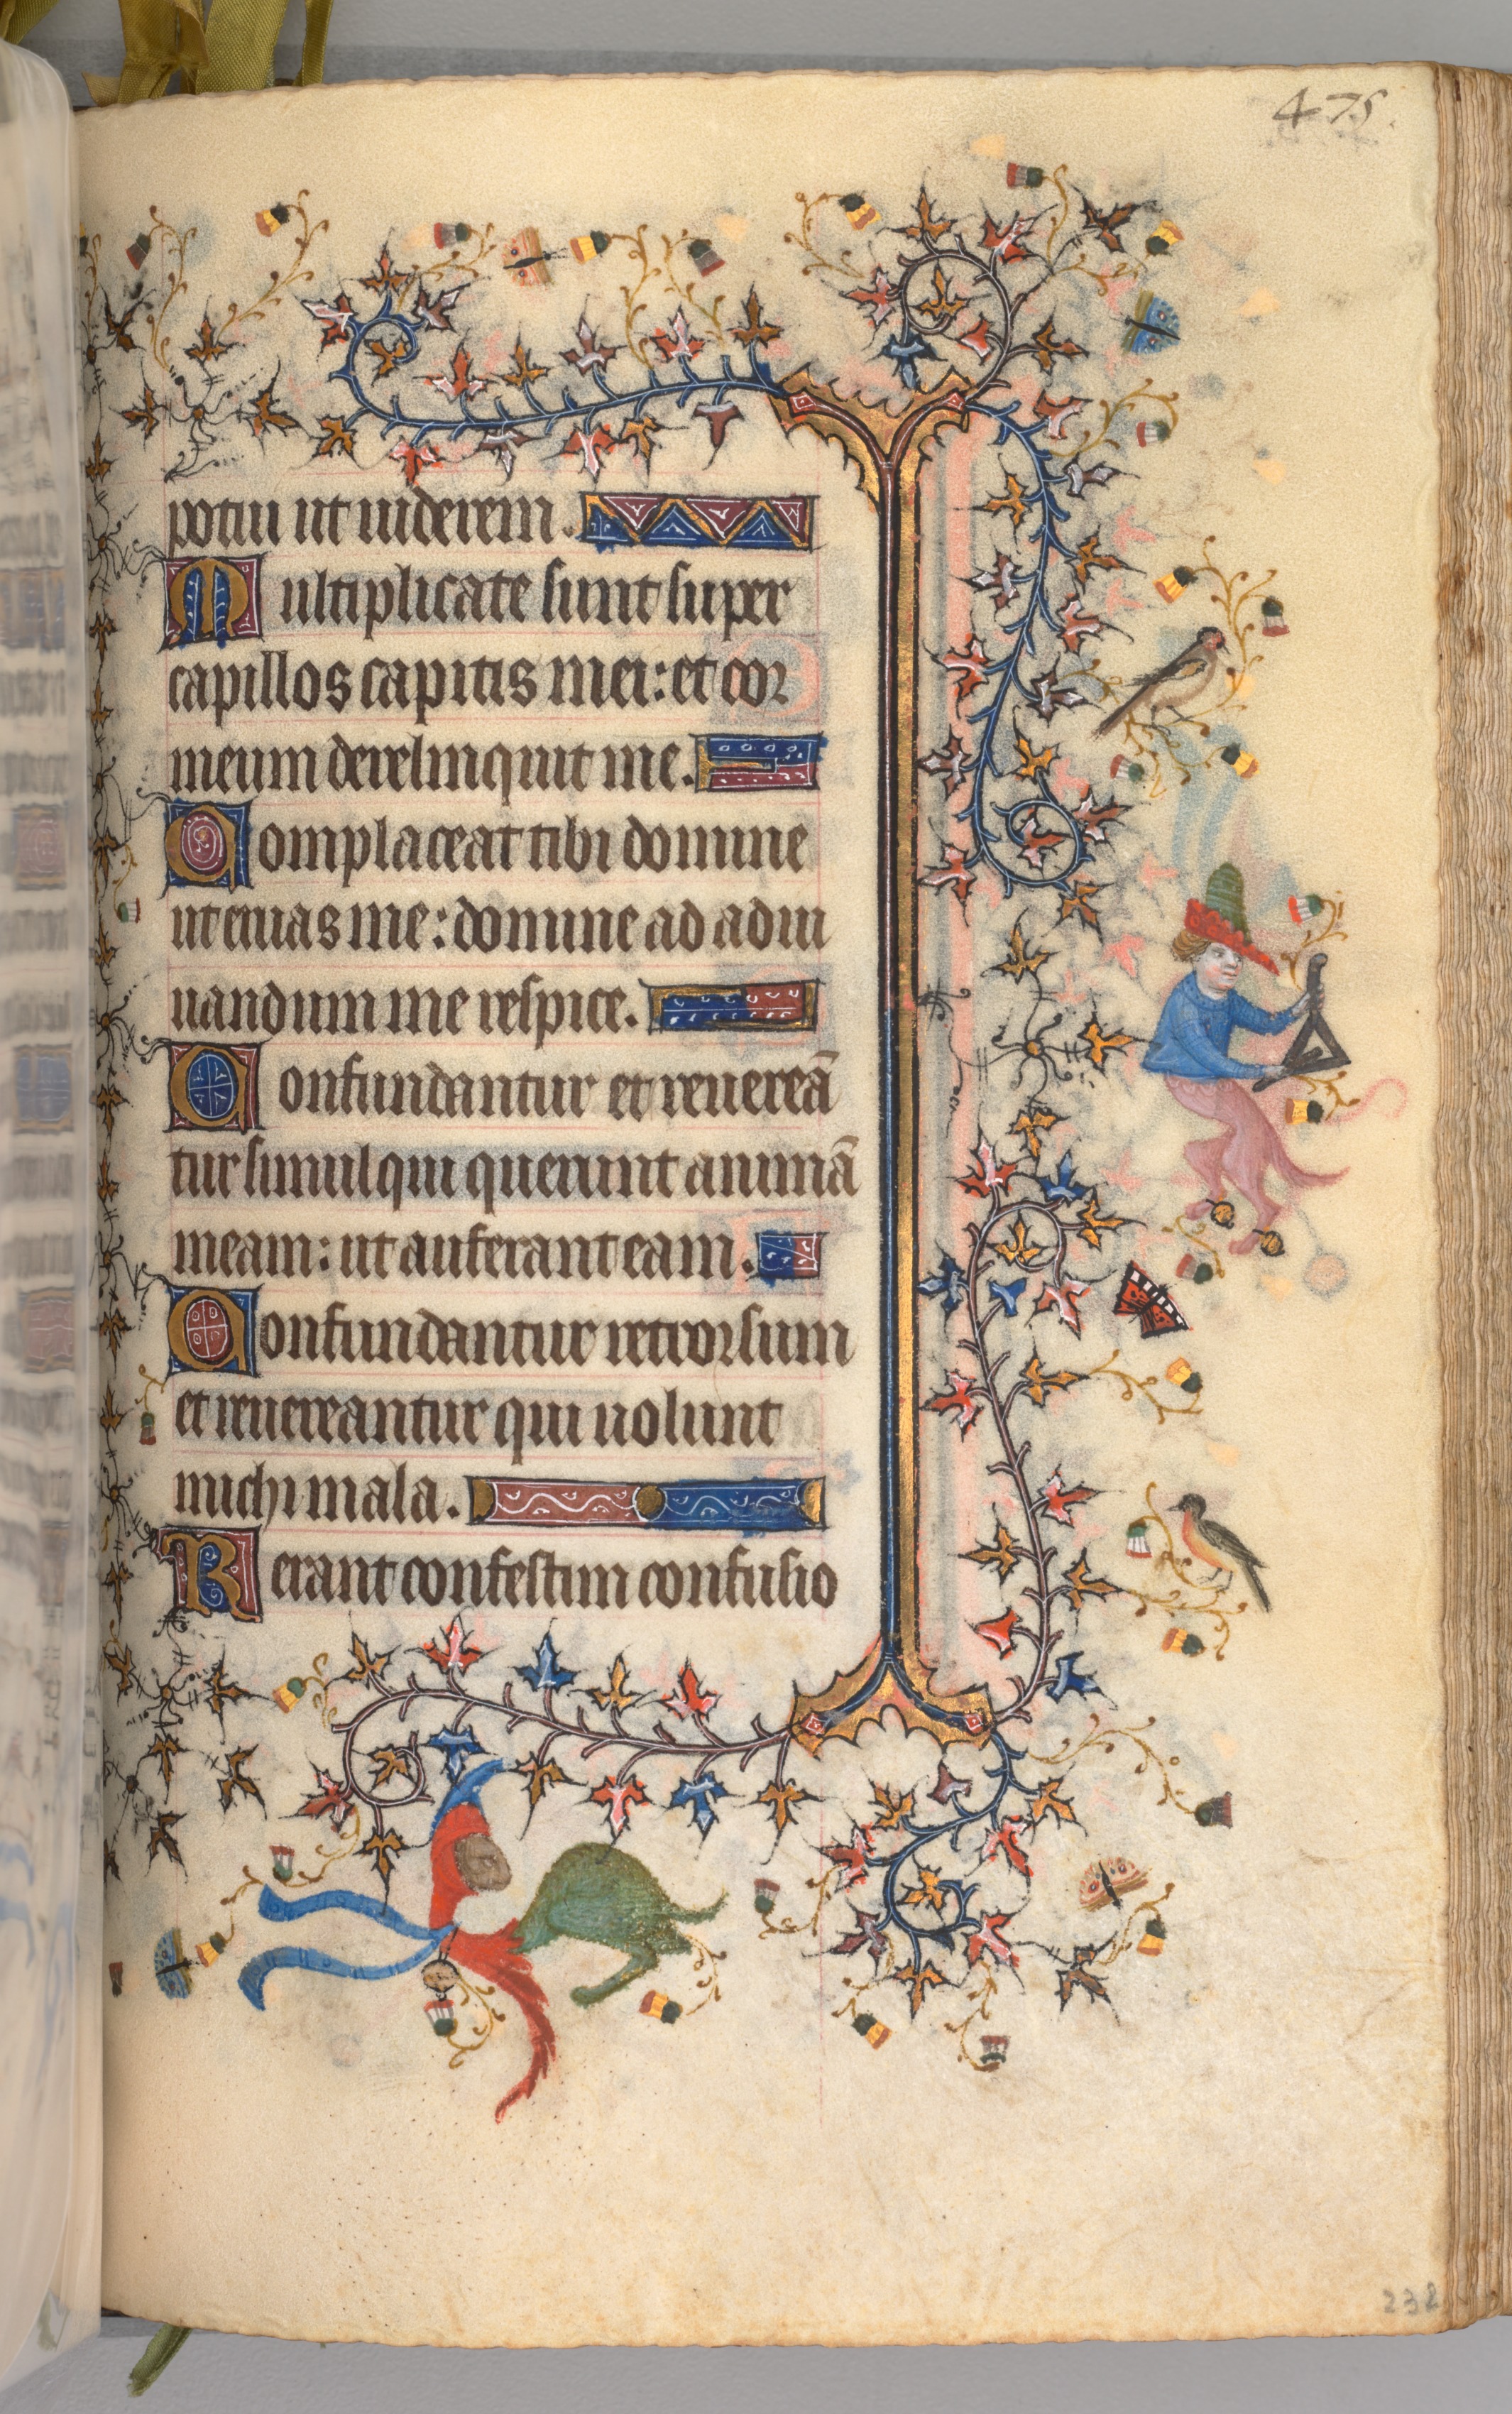 475.
potui ut uiderem.
Multiplicate sunt super
capillos capitis mei: et cor
meum derelinquit me.
Complaceat tibi domine
ut eruas me: domine ad adiu
uandum me respice.
Confundantur et reuereā
tur simul qui querunt animā
meam: ut auferant eam.
Confundantur retrorsum
et reuereantur qui uolunt
michi mala.
Ferant confestim confusio
238